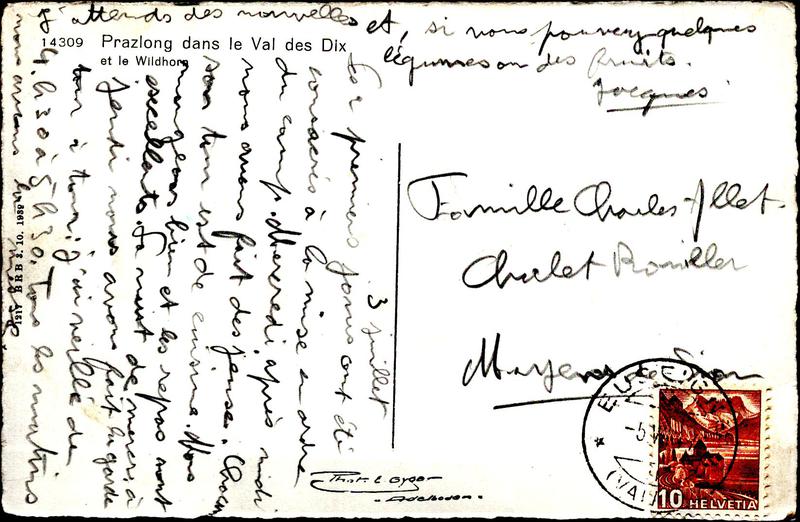 14309 Prazlong dans le Val des Dix
et le Wildhorn
3 juillet
Les 2 premiers jours ont été
consacrés à la mise en ordre
du camp. Mercredi après midi
nous avons fait des jeux. Chacun
son tour est de cuisine. Nous
mangeons bien et les repas sont
excellents. La nuit de mercredi à
jeudi nous avons fait la garde
tour à tour; j'ai veillé de
4h30 à 5h30. Tous les matins
nous avons la messe
J'attends des nouvelles et, si vous pouvez quelques
légumes ou des fruits.
Jacques
Famille Charles Allet.
Chalet
Mayens de Sion
1217 BRB 3. 10. 1939
Phot. E. Gyger
Adelboden
-5.
(VALAIS)
10 HELVETIA